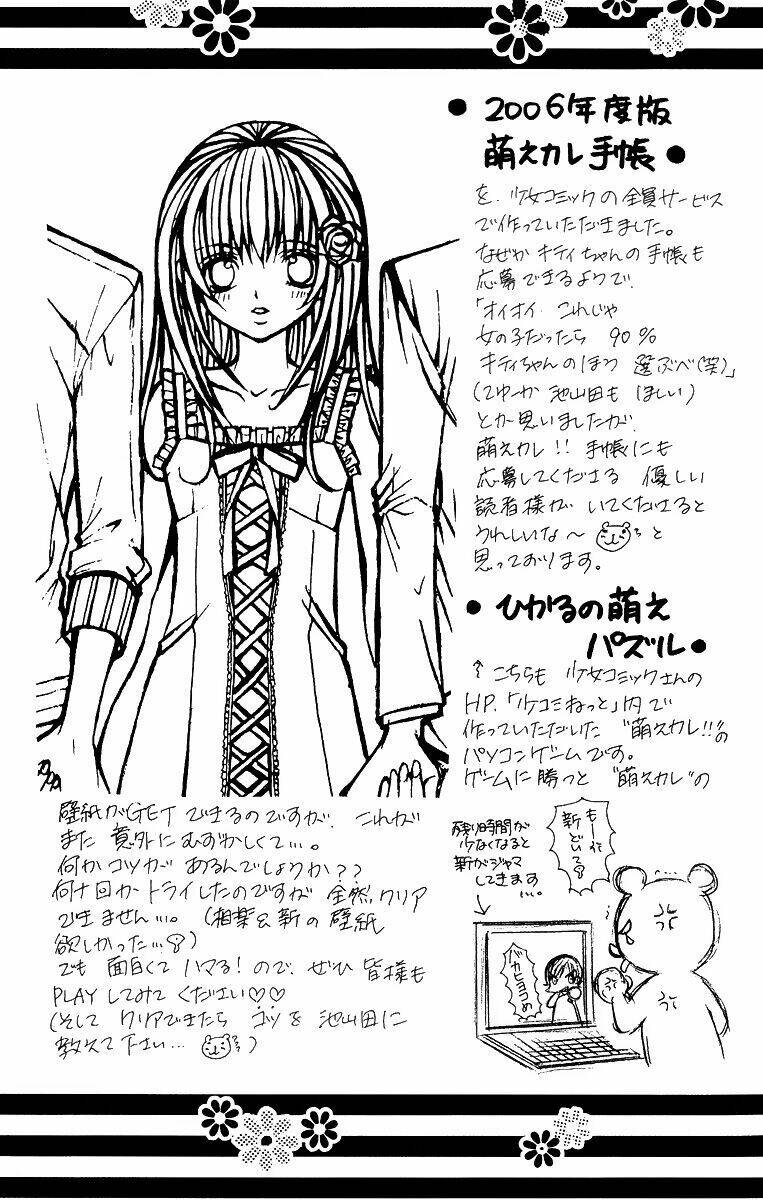 ●2006年度版
萌えカレ手帳●
を、少女コミックの全員サービス
で作っていただきました。
なぜか キティちゃんの手帳も
応募できるようで、
「オイオイ これじゃ
女の子だったら 90%
キティちゃんのほう 選ぶべ(笑)」
(てゆーか 池山田も ほしい)
とか思いましたが、
萌えカレ!! 手帳にも
応募してくださる 優しい
読者様が いてくださると
うれしいな〜 と
思っております。
●ひかるの萌え
パズル●
↑こちらも 少女コミックさんの
HP、「少コミねっと」内で
作っていただいた "萌えカレ!!"の
パソコンゲームです。
ゲームに勝つと "萌えカレ"の
壁紙がGETできるのですが、これが
また 意外にむずかしくて…。
何かコツが あるんでしょうか??
何十回かトライしたのですが 全然クリア
できません…。(相楽&新の壁紙
欲しかった…)
でも 面白くて ハマる!ので、ぜひ 皆様も
PLAYしてみてください♡♡
(そして クリアできたら コツを 池山田に
教えて下さい… )
残り時間が
少なくなると
新がジャマ
してきます
…。
もーっ
新
どいて
バカヒヨコめ